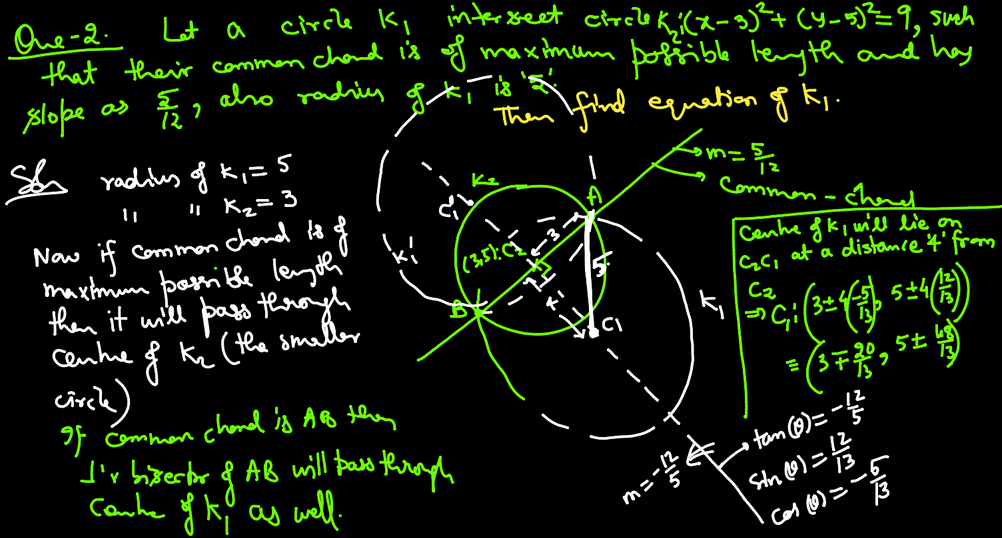 Que-2. Let a circle K₁ intersect circle K₂: (x-3)²+(y-5)²=9, such
that their common chord is of maximum possible length and has
slope as 5/12, also radius of K₁ is '5'.
Then find equation of K₁.
Soln radius of K₁ = 5
" " K₂ = 3
Now if common chord is of
maximum possible length
then it will pass through
centre of K₂ (the smaller
circle)
If common chord is AB then
⊥'r bisector of AB will pass through
centre of K₁ as well.
K₂
C₁'
K₁'
(3,5): C₂
A
B
3
4
5
C₁
K₁
m = 5/12
Common-chord
m = -12/5
Centre of K₁ will lie on
C₂C₁ at a distance '4' from
C₂
⇒ C₁: (3±4(-5/13), 5±4(12/13))
≡ (3∓20/13, 5±48/13)
tan(θ) = -12/5
sin(θ) = 12/13
cos(θ) = -5/13